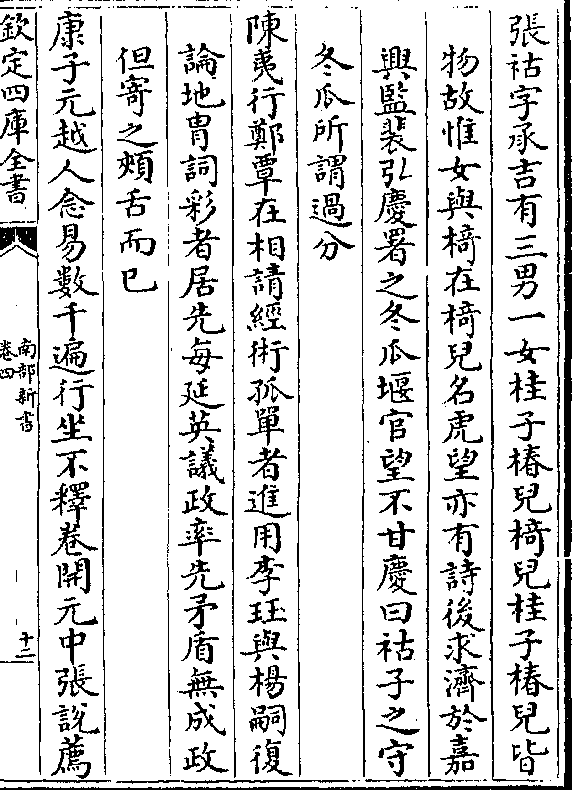 張祜字承吉有三男一女桂子椿兒椅兒桂子椿兒皆
物故惟女與椅在椅兒名虎望亦有詩後求濟於嘉
興監裴弘慶署之冬瓜堰官望不甘慶曰祜子之守
冬瓜所謂過分
陳夷行鄭覃在相請經術孤單者進用李珏與楊嗣復
論地胄詞彩者居先每延英議政率先矛盾無成政
但寄之頰舌而已
康子元越人念易數千遍行坐不釋卷開元中張說薦
欽定四庫全書
南部新書
卷四
十二